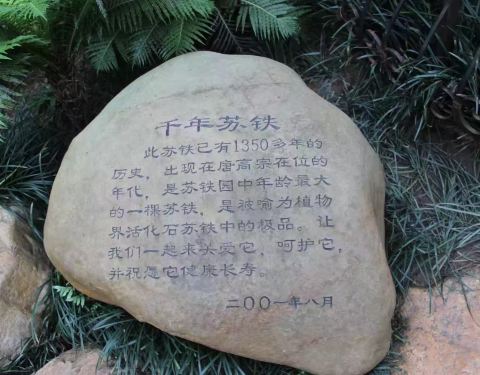 千年苏铁
此苏铁已有1350多年的
历史，出现在唐高宗在位的
年代，是苏铁园中年龄最大
的一棵苏铁，是被喻为植物
界活化石苏铁中的极品。让
我们一起来关爱它，呵护它，
并祝愿它健康长寿。
二00一年八月